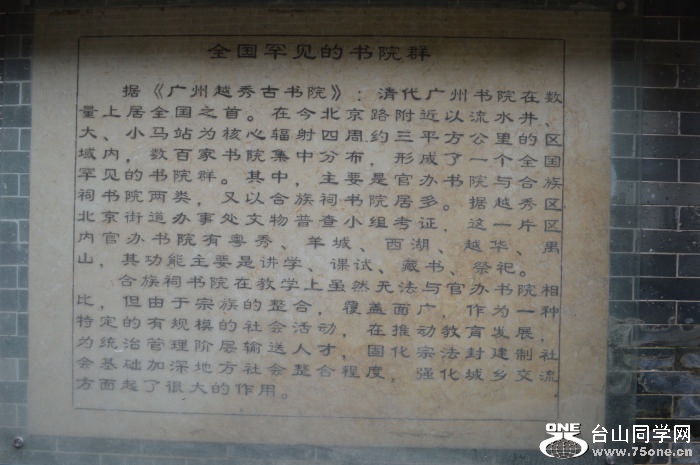 全国罕见的书院群
据《广州越秀古书院》：清代广州书院在数
量上居全国之首。在今北京路附近以流水井、
大、小马站为核心辐射四周约三平方公里的区
域内，数百家书院集中分布，形成了一个全国
罕见的书院群。其中，主要是官办书院与合族
祠书院两类，又以合族祠书院居多。据越秀区
北京街道办事处文物普查小组考证，这一片区
内官办书院有粤秀、羊城、西湖、越华、禺
山，其功能主要是讲学、课试、藏书、祭祀。
合族祠书院在教学上虽然无法与官办书院相
比，但由于宗族的整合，覆盖面广，作为一种
特定的有规模的社会活动，在推动教育发展，
为统治管理阶层输送人才，固化宗法封建制社
会基础加深地方社会整合程度，强化城乡交流
方面起了很大的作用。
ONE
台山同学网
www.75one.cn